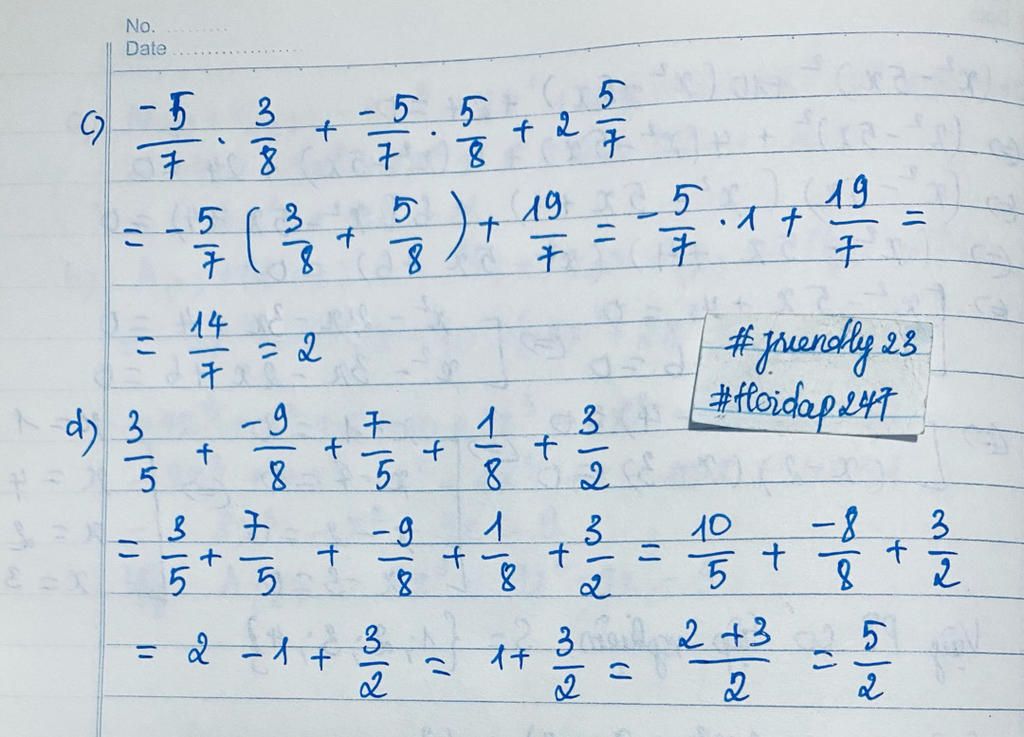 No. ..........
Date ....................
c) \frac{-5}{7} . \frac{3}{8} + \frac{-5}{7} . \frac{5}{8} + 2 \frac{5}{7}
= - \frac{5}{7} ( \frac{3}{8} + \frac{5}{8} ) + \frac{19}{7} = - \frac{5}{7} . 1 + \frac{19}{7} =
= \frac{14}{7} = 2
# friendly 23
#Hoidap 247
d) \frac{3}{5} + \frac{-9}{8} + \frac{7}{5} + \frac{1}{8} + \frac{3}{2}
= \frac{3}{5} + \frac{7}{5} + \frac{-9}{8} + \frac{1}{8} + \frac{3}{2} = \frac{10}{5} + \frac{-8}{8} + \frac{3}{2}
= 2 - 1 + \frac{3}{2} = 1 + \frac{3}{2} = \frac{2+3}{2} = \frac{5}{2}